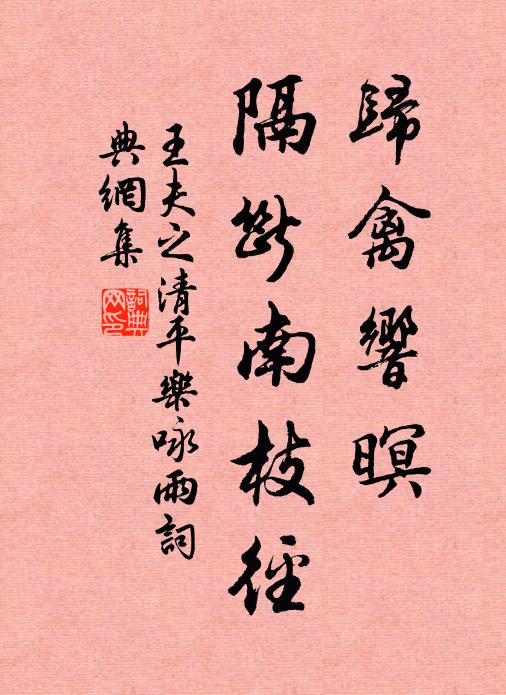 歸禽響暝
隔斷南枝徑
王夫之清平樂咏雨詞
典網集
詞典网印